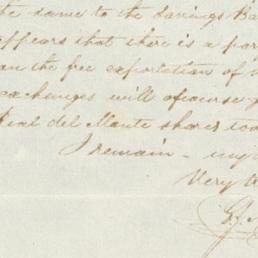 the same to the Savings Ba
appears that there is a par
an the free exportation of
exchanges will ofcourse
Real del Monte shares too
I remain - my
Very